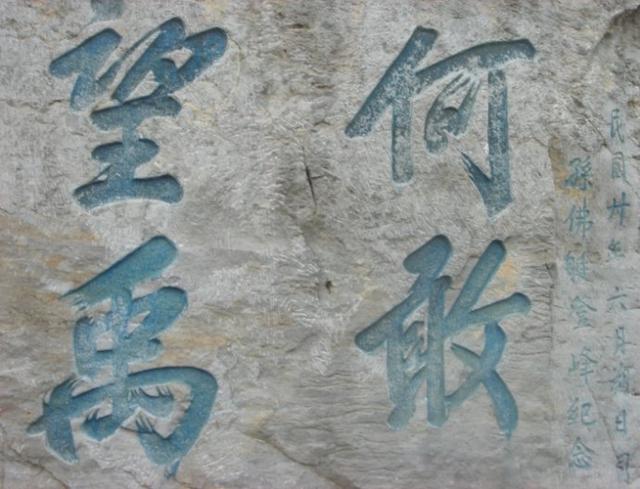 民國廿年六月日
孫佛登峰紀念
何敢
望禹